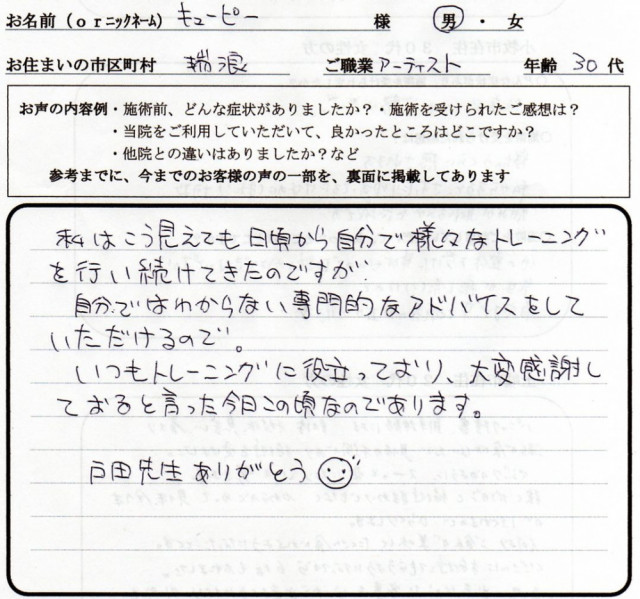 お名前(orニックネーム) キューピー 様 男・女
お住まいの市区町村 瑞浪 ご職業 アーティスト 年齢 30 代
お声の内容例・施術前、どんな症状がありましたか?・施術を受けられたご感想は?
・当院をご利用していただいて、良かったところはどこですか?
・他院との違いはありましたか?など
参考までに、今までのお客様の声の一部を、裏面に掲載してあります
私はこう見えても日頃から自分で様々なトレーニング
を行い続けてきたのですが
自分ではわからない専門的なアドバイスをして
いただけるので。
いつもトレーニングに役立っており、大変感謝し
ておると言った今日この頃なのであります。
戸田先生ありがとう